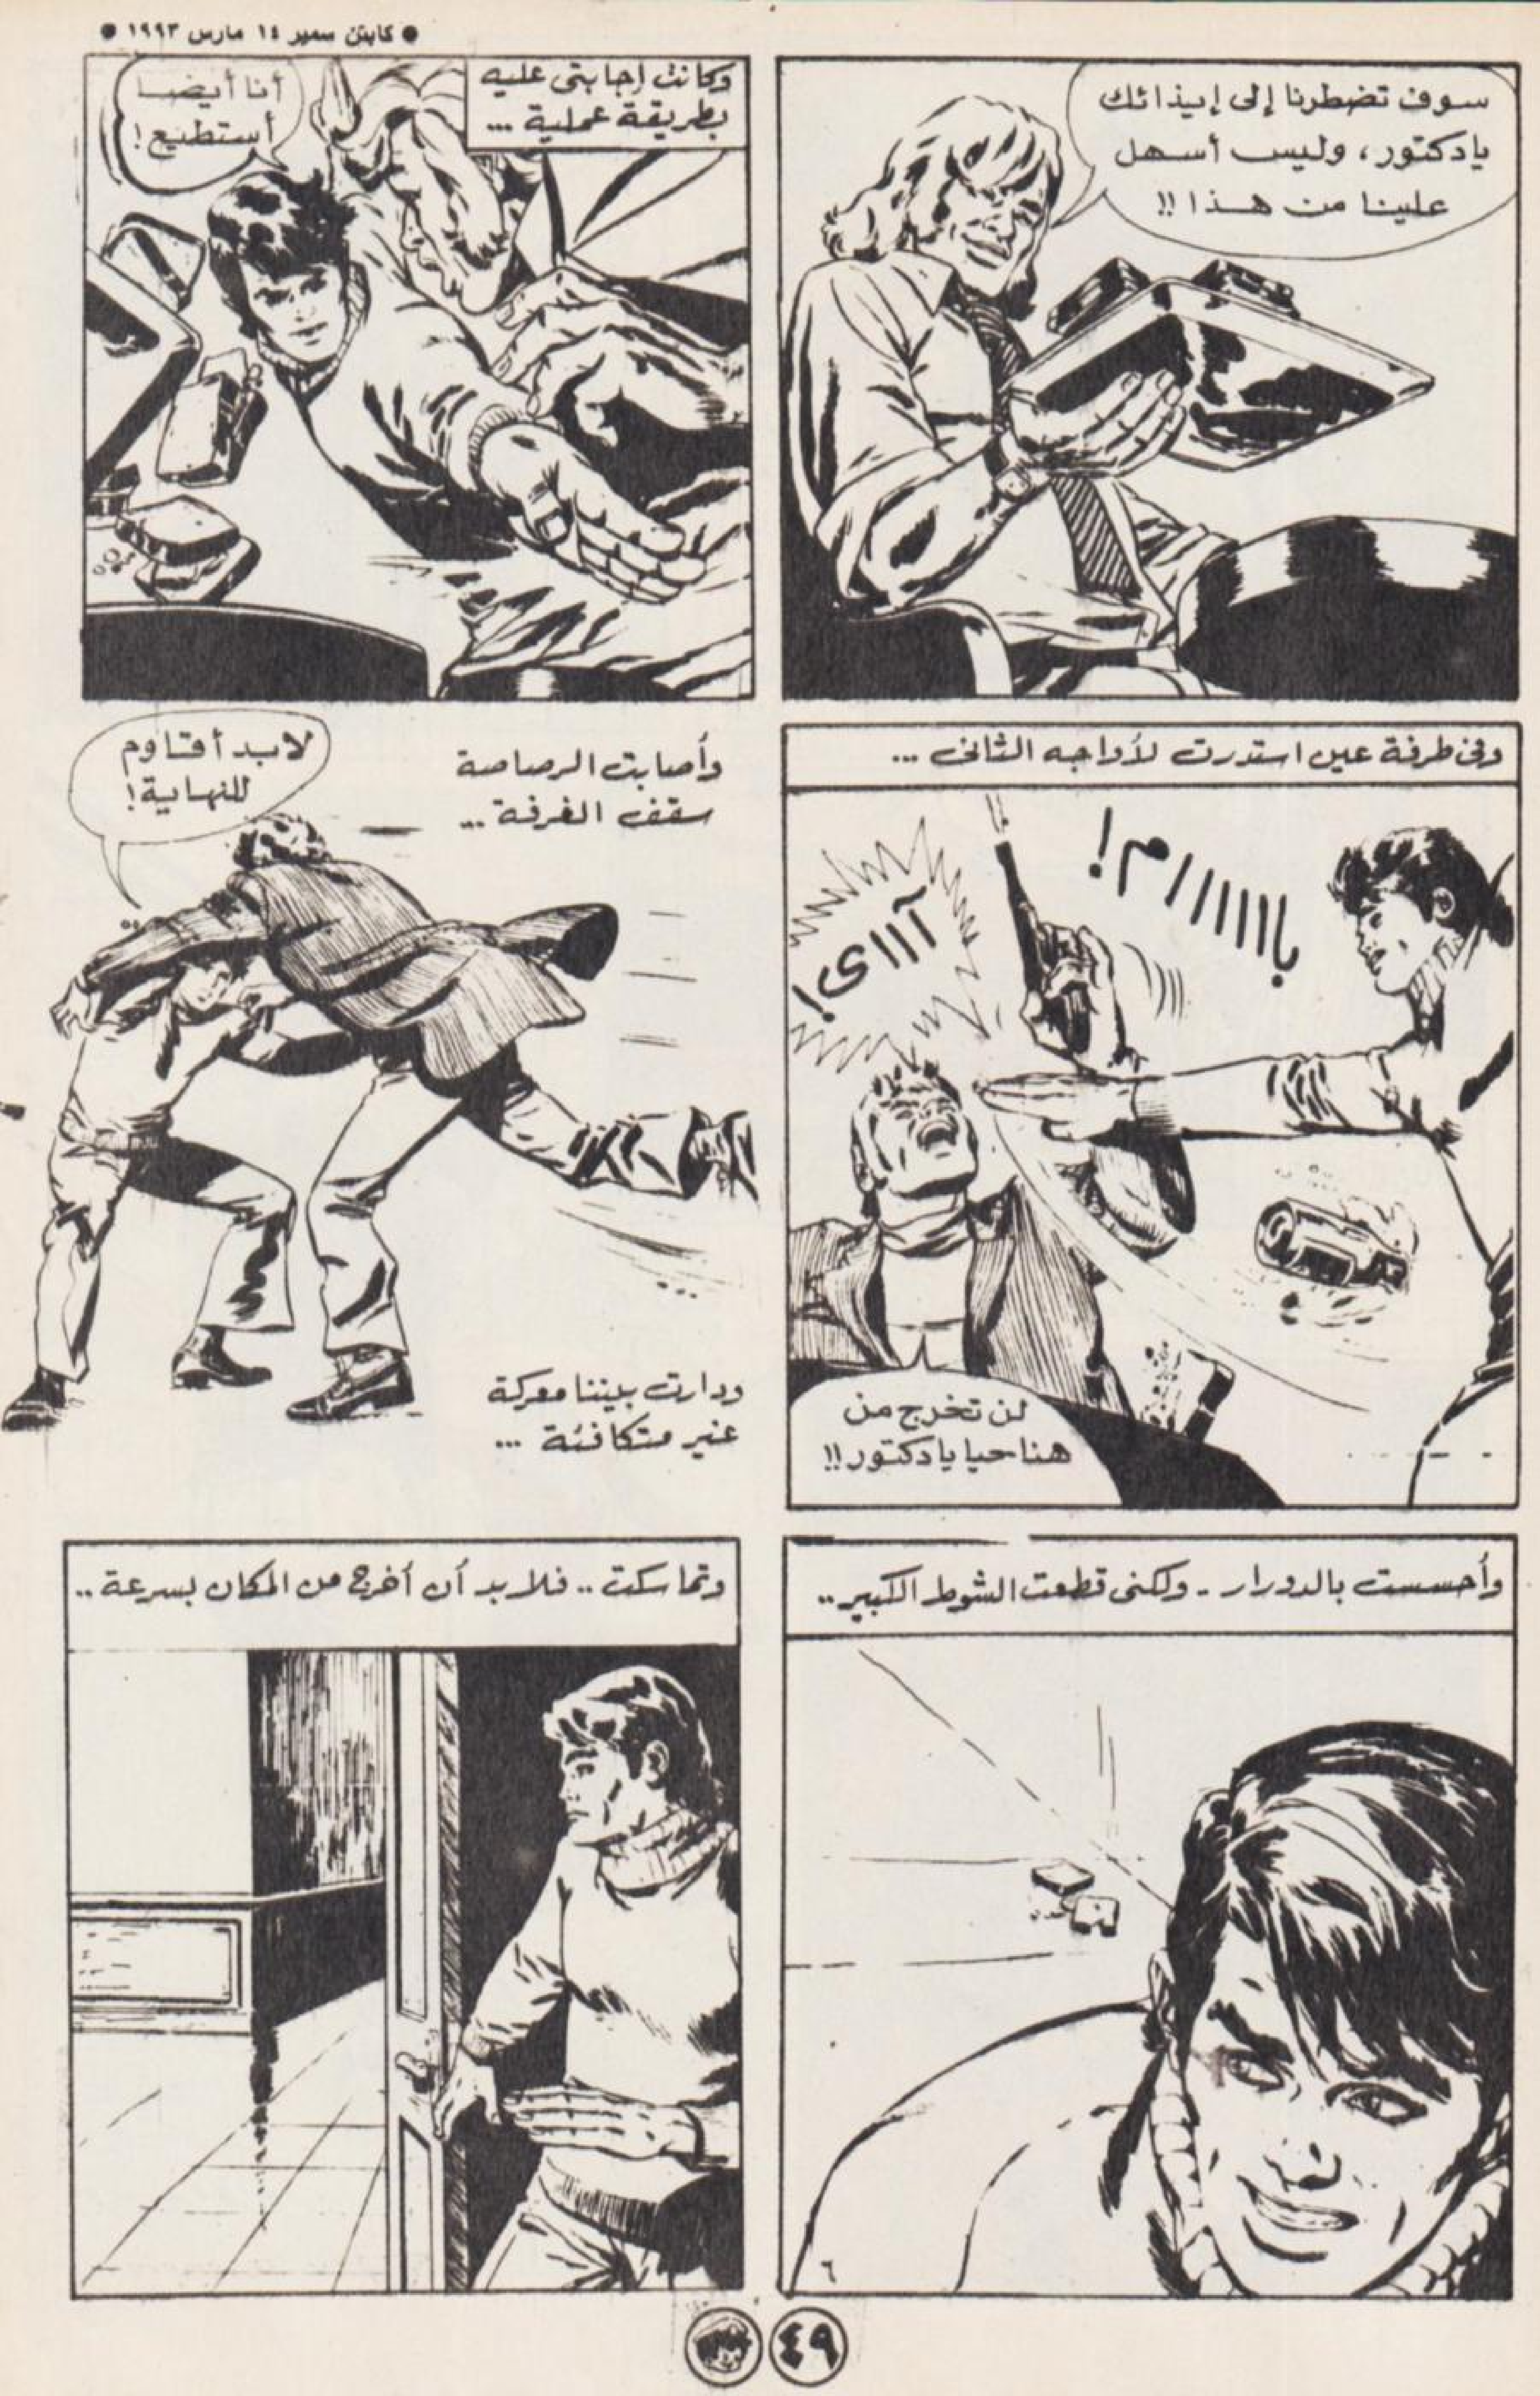 ● كابتن سمير ١٤ مارس ١٩٩٣ ●
سوف تضطرنا إلى إيذائك
يا دكتور، وليس أسهل
علينا من هذا !!
وكانت إجابتى عليه
بطريقة عملية ...
أنا أيضا
أستطيع !
وفى طرفة عين استدرت لأواجه الثانى ...
بااااااام !
آااى !
لن تخرج من
هنا حيا يا دكتور !!
وأصابت الرصاصة
سقف الغرفة ...
لابد أقاوم
للنهاية !
ودارت بيننا معركة
غير متكافئة ...
وأحسست بالدوار - ولكنى قطعت الشوط الكبير ..
٦
وتماسكت .. فلابد أن أخرج من المكان بسرعة ..
٤٩